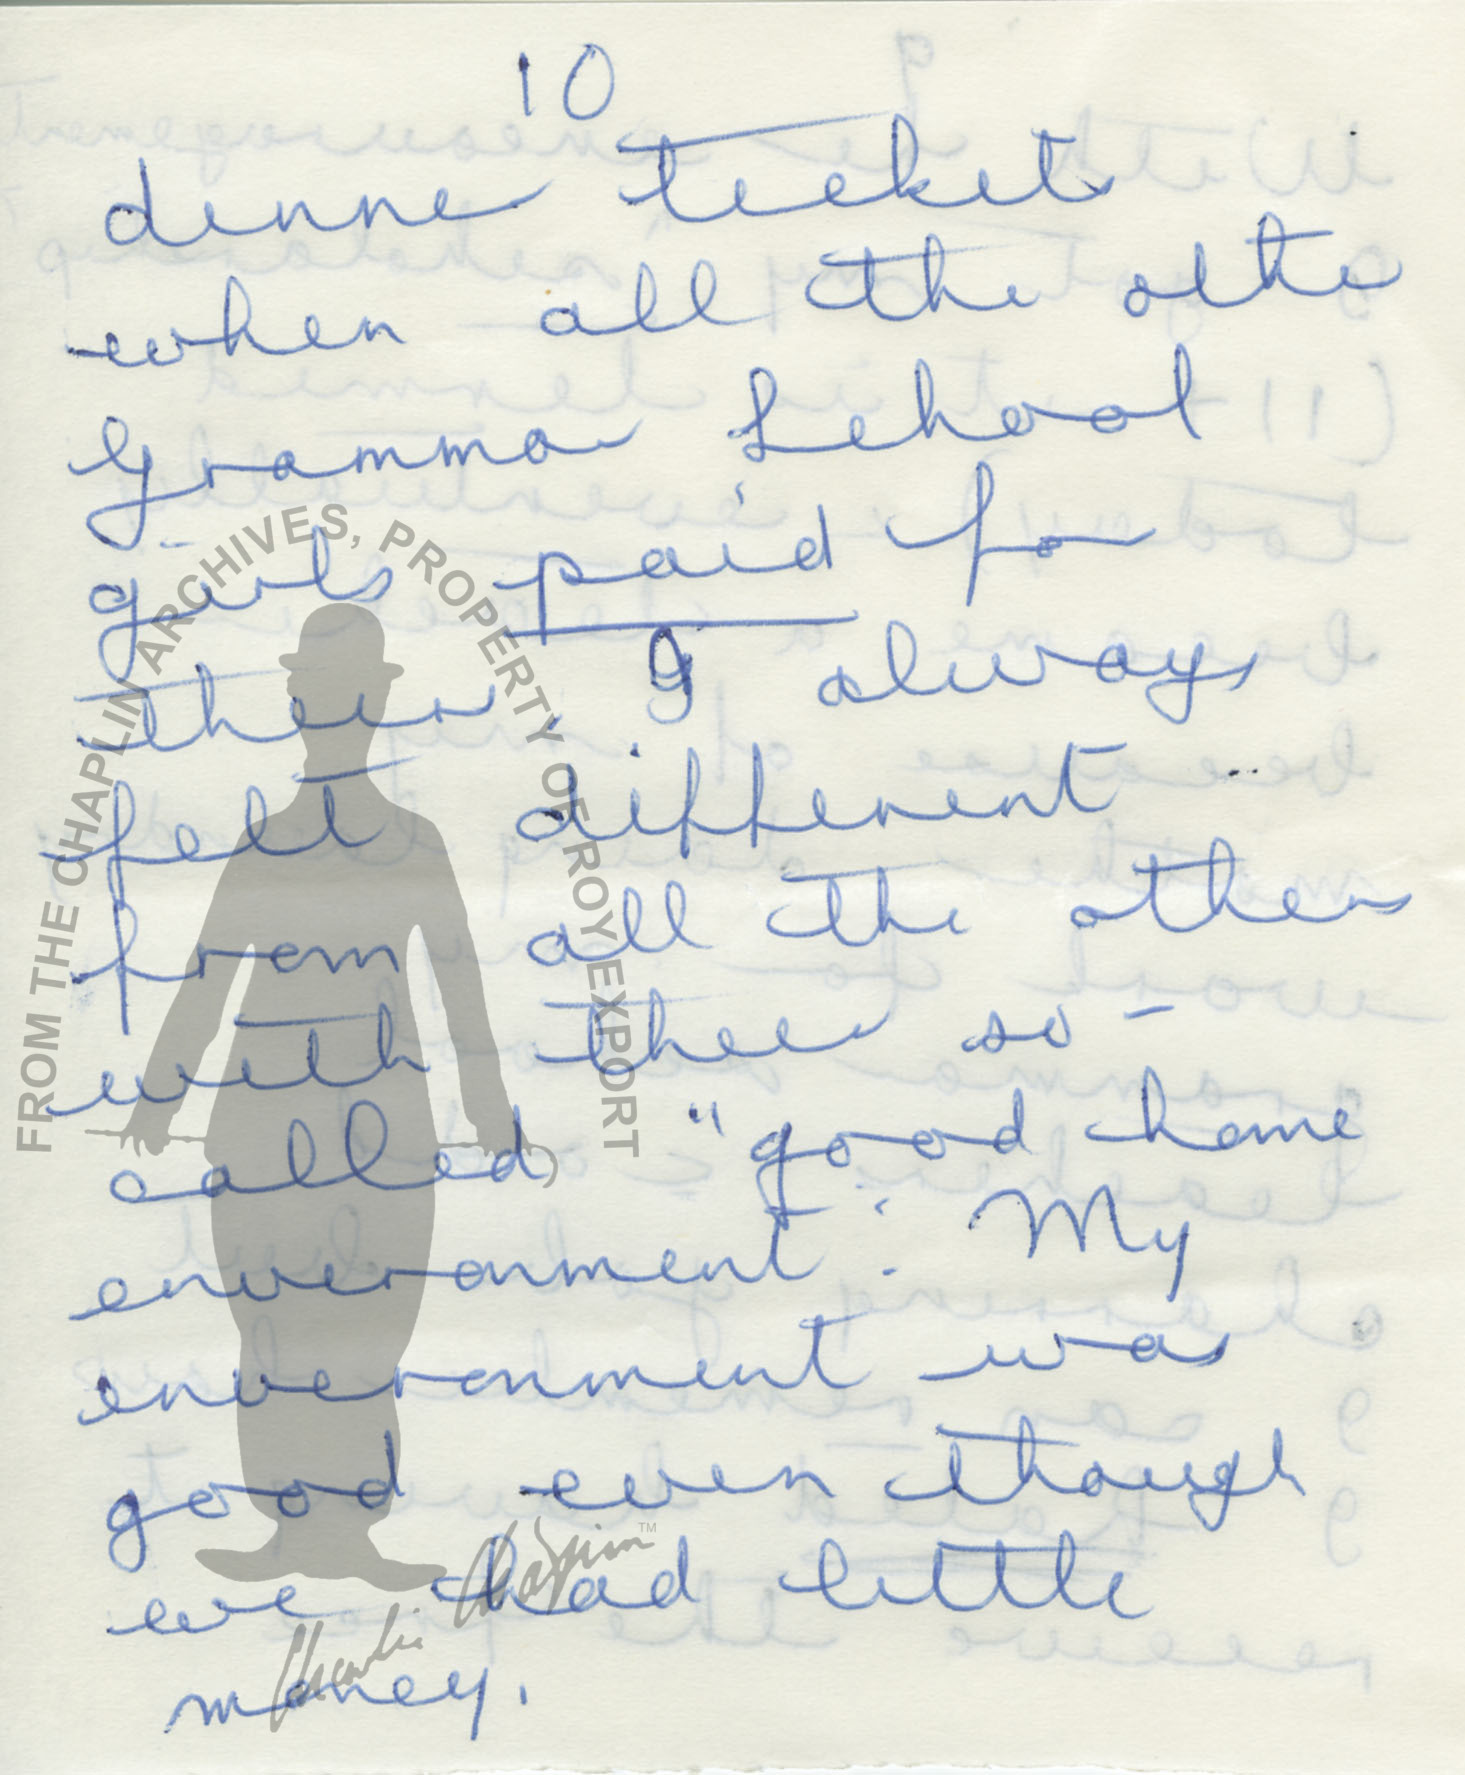 10
dinner ticket
when all the other
Grammar School
girls paid for
theirs. I always
felt different
from all the others
with their so-
called "good home
environment". My
environment was
good even though
we had little
money.
FROM THE CHAPLIN ARCHIVES, PROPERTY OF ROY EXPORT
Charlie Chaplin™